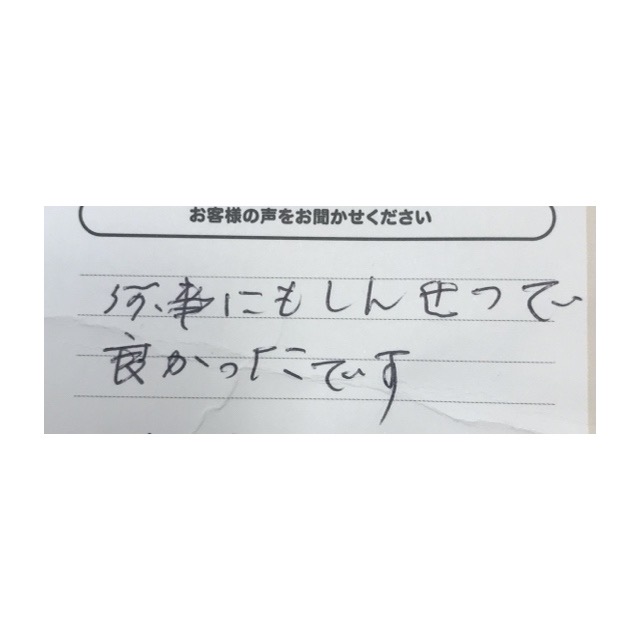 お客様の声をお聞かせください
何事にもしんせつで
良かったです